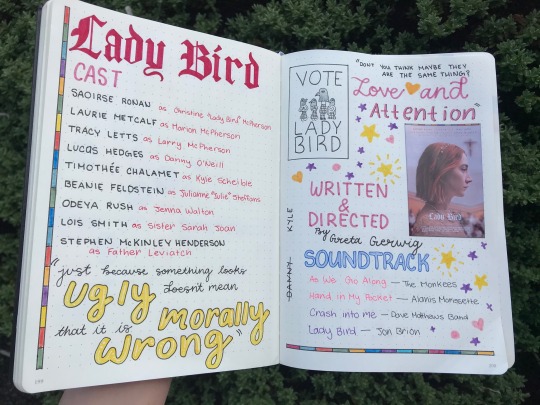 Lady Bird
CAST
SAOIRSE RONAN as Christine "Lady Bird" McPherson
LAURIE METCALF as Marion McPherson
TRACY LETTS as Larry McPherson
LUCAS HEDGES as Danny O'Neill
TIMOTHÉE CHALAMET as Kyle Scheible
BEANIE FELDSTEIN as Julianne "Julie" Steffans
ODEYA RUSH as Jenna Walton
LOIS SMITH as Sister Sarah Joan
STEPHEN McKINLEY HENDERSON
as Father Leviatch
"just because something looks
ugly doesn't mean
that it is morally
wrong"
VOTE
LADY
BIRD
"DON'T YOU THINK MAYBE THEY
ARE THE SAME THING?
Love and
Attention"
Lady Bird
WRITTEN
&
DIRECTED
By Greta Gerwig
DANNY KYLE
SOUNDTRACK
As We Go Along — The Monkees
Hand In My Pocket — Alanis Morissette
Crash into me — Dave Matthews Band
Lady Bird — Jon Brion